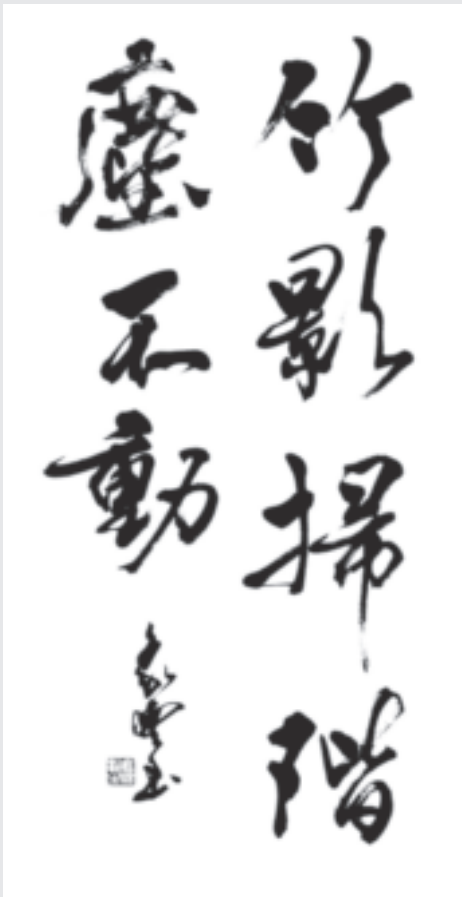 竹影掃階
塵不動